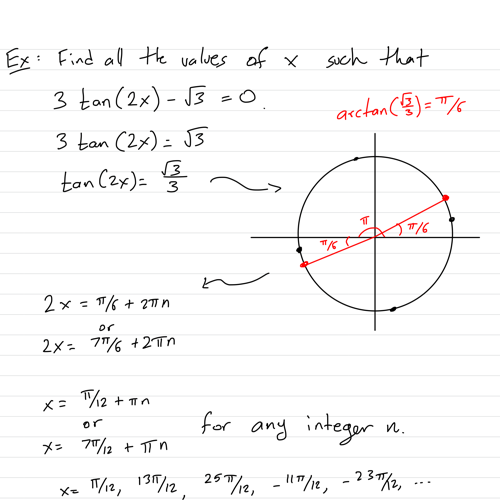 Ex: Find all the values of x such that
3 tan(2x) - √3 = 0.
arctan(√3/3) = π/6
3 tan(2x) = √3
tan(2x) = √3/3
π
π/6
π/6
2x = π/6 + 2πn
or
2x = 7π/6 + 2πn
x = π/12 + πn
or
x = 7π/12 + πn
for any integer n.
x = π/12, 13π/12, 25π/12, -11π/12, -23π/12, ...